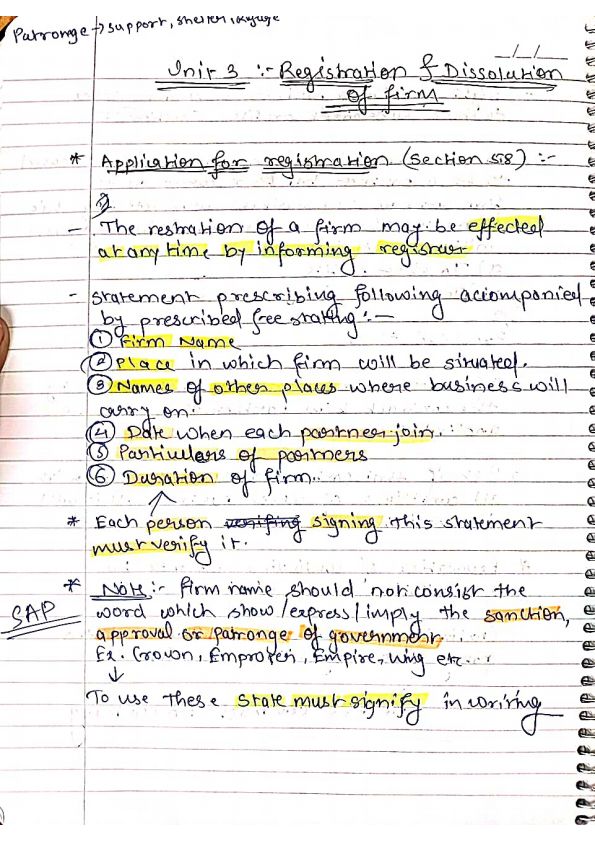 Patronge → support, shelter, refuge
_/_/_
Unit 3 :- Registration & Dissolution
of firm
* Application for registration (Section 58) :-
- The restration of a firm may be effected
at any time by informing registrar
- statement prescribing following accompanied
by prescribed free stating :-
① Firm Name
② Place in which firm will be situated.
③ Names of other places where business will
carry on.
④ Date when each partner join.
⑤ Particulars of partners
⑥ Duration of firm.
* Each person verifing signing this statement
must verify it.
* Note :- firm name should not consist the
word which show/express/imply the sanction,
SAP
approval or patronge of government.
Ex. Crown, Emproren, Empire, wing etc.
↓
To use these state must signify in writing